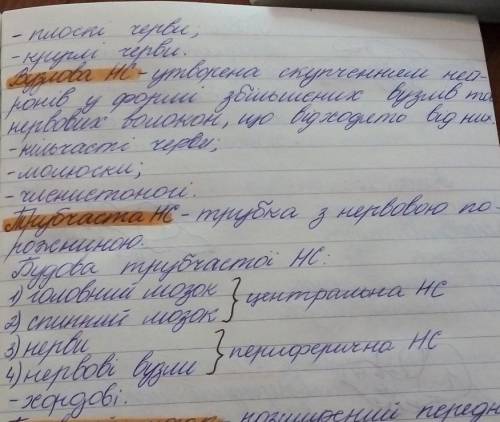 - плоскі черви;
- круглі черви.
Вузлова НС - утворена скупченням ней-
ронів у формі збільшених вузлів та
нервових волокон, що відходять від них.
- кільчасті черви;
- молюски;
- членистоногі.
Трубчаста НС - трубка з нервовою по-
рожниною.
Будова трубчастої НС:
1) головний мозок
2) спинний мозок } центральна НС
3) нерви
4) нервові вузли } периферична НС
- хордові.
розширений передн